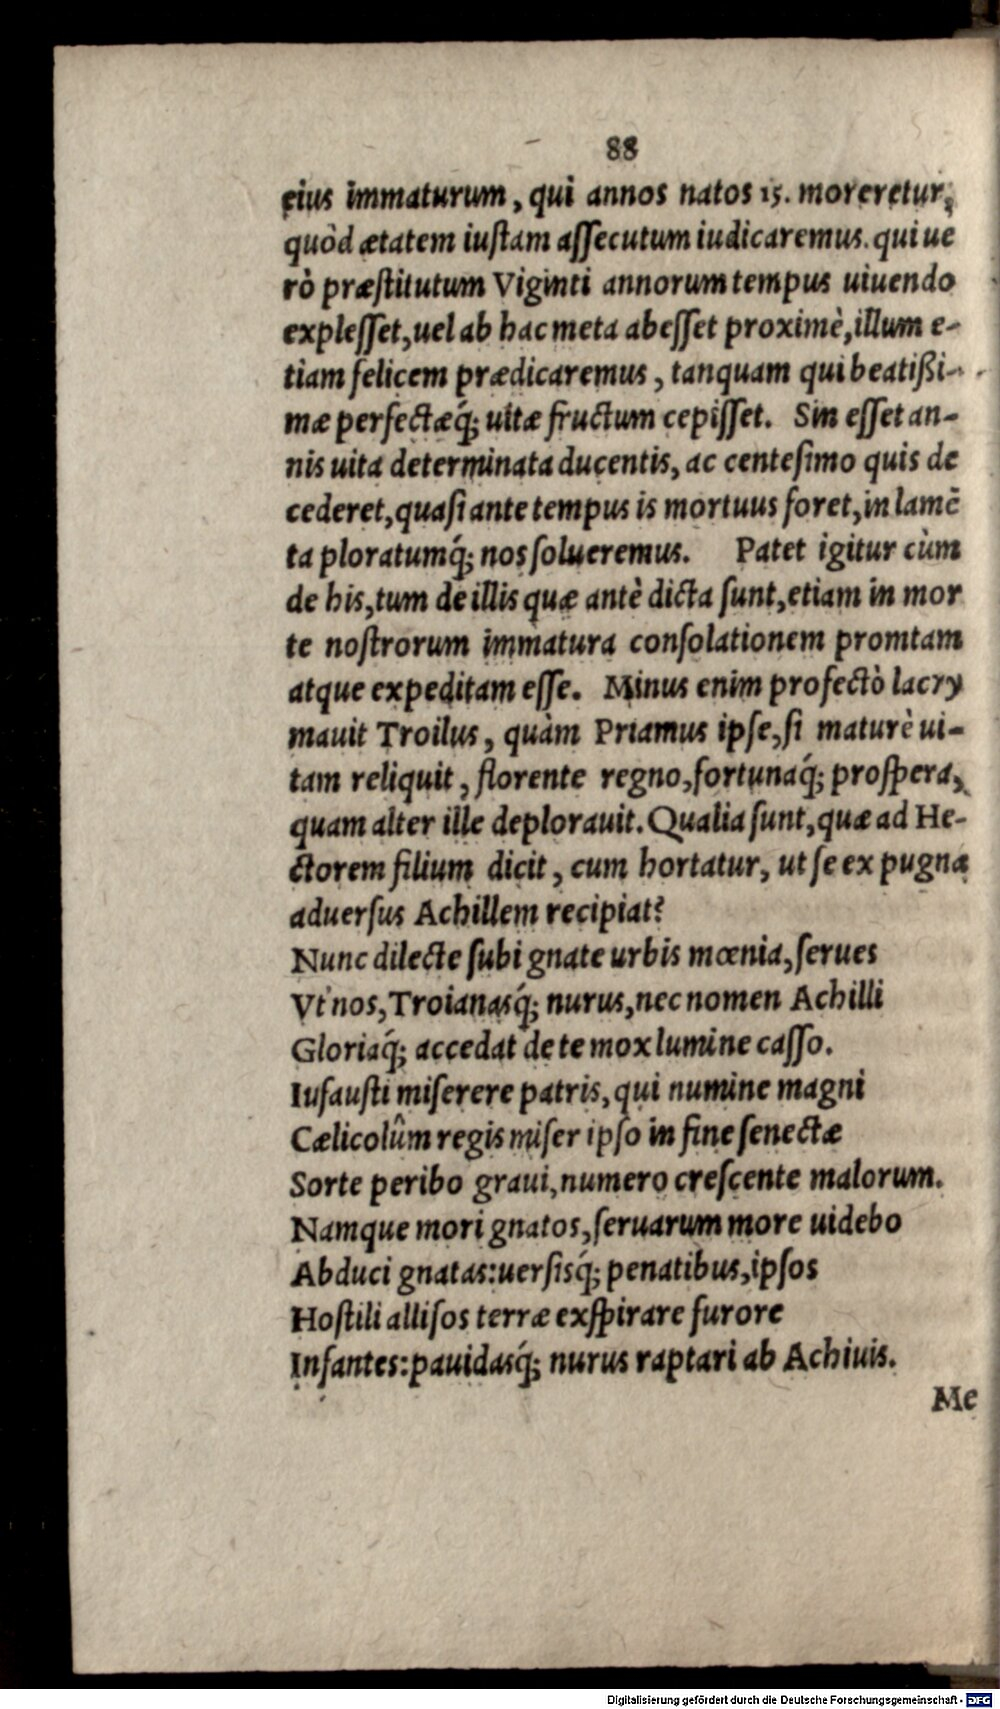 88
eius immaturum, qui annos natos 15. moreretur,
quòd ætatem iustam assecutum iudicaremus. qui ue
rò præstitutum Viginti annorum tempus uiuendo
explesset, uel ab hac meta abesset proximè, illum e-
tiam felicem prædicaremus, tanquam qui beatißi-
mæ perfectæq́; uitæ fructum cepisset. Sin esset an-
nis uita determinata ducentis, ac centesimo quis de
cederet, quasi ante tempus is mortuus foret, in lamē
ta ploratumq́; nos solueremus. Patet igitur cùm
de his, tum de illis quæ antè dicta sunt, etiam in mor
te nostrorum immatura consolationem promtam
atque expeditam esse. Minus enim profectò lacry
mauit Troilus, quàm Priamus ipse, si maturè ui-
tam reliquit, florente regno, fortunaq́; prospera,
quam alter ille deplorauit. Qualia sunt, quæ ad He-
ctorem filium dicit, cum hortatur, ut se ex pugna
aduersus Achillem recipiat?
Nunc dilecte subi gnate urbis mœnia, serues
Vt nos, Troianasq́; nurus, nec nomen Achilli
Gloriaq́; accedat de te mox lumine casso.
Iufausti miserere patris, qui numine magni
Cælicolûm regis miser ipso in fine senectæ
Sorte peribo graui, numero crescente malorum.
Namque mori gnatos, seruarum more uidebo
Abduci gnatas: uersisq́; penatibus, ipsos
Hostili allisos terræ exspirare furore
Infantes: pauidasq́; nurus raptari ab Achiuis.
Me
Digitalisierung gefördert durch die Deutsche Forschungsgemeinschaft - DFG